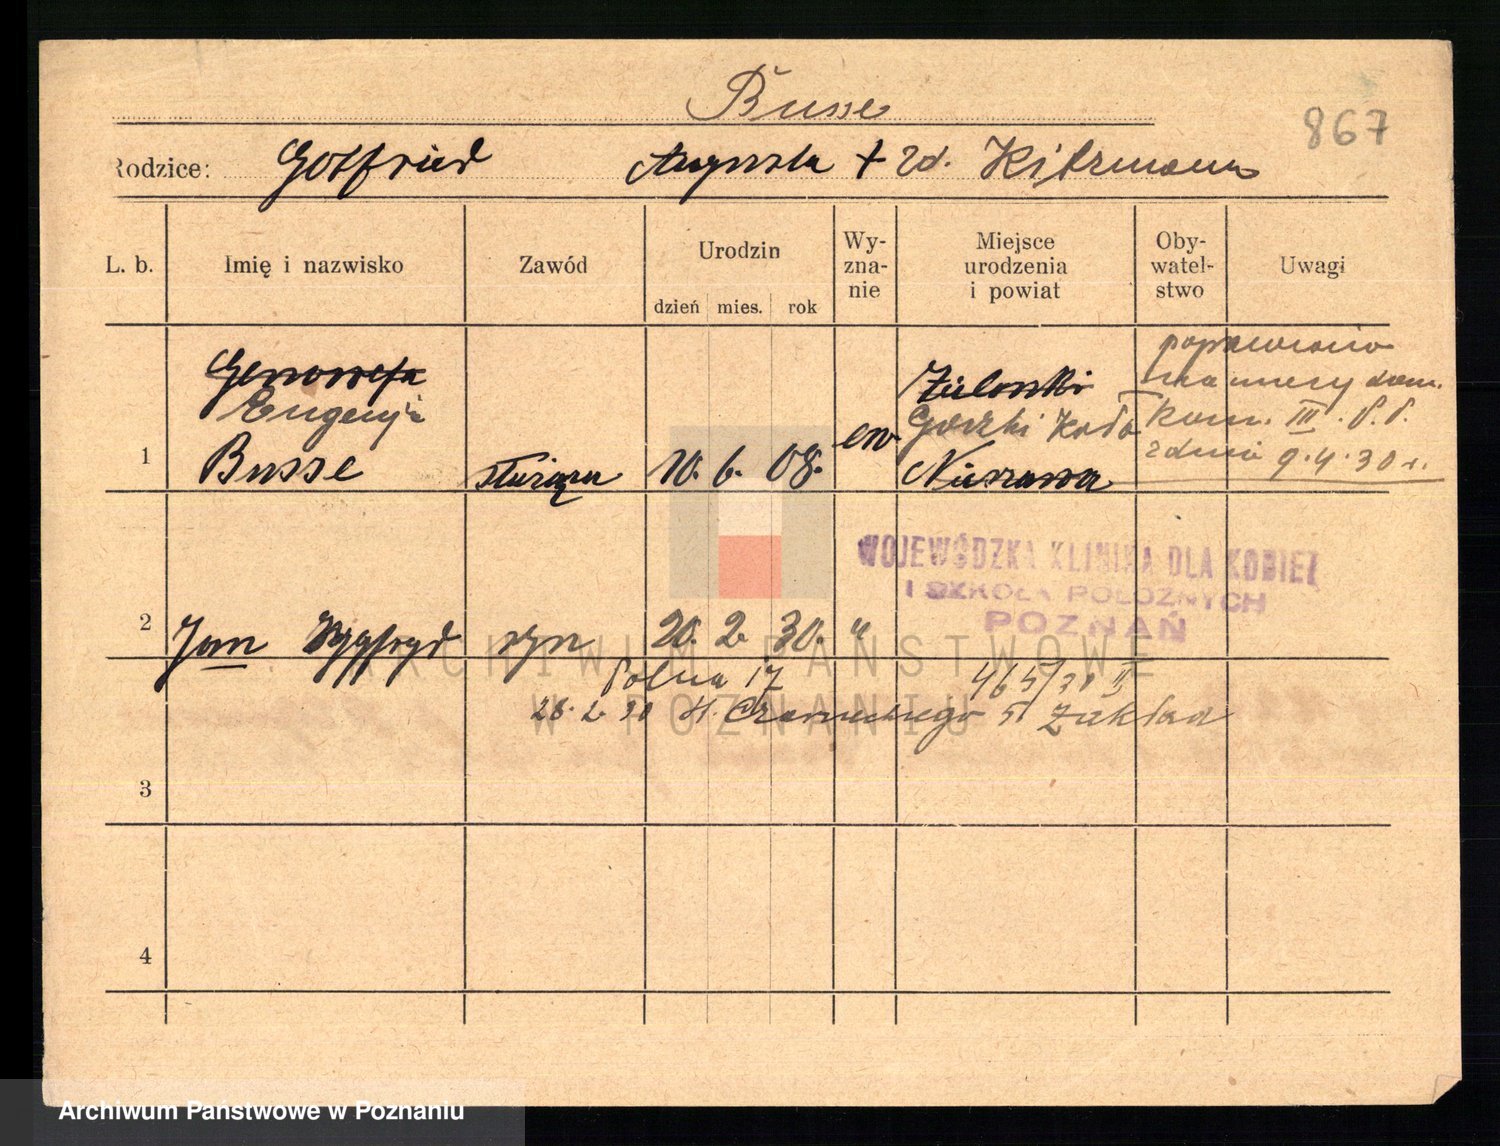 Busse
867
Rodzice: Gotfried Augusta + zd. Kitzmann
L. b. Imię i nazwisko Zawód Urodzin Wy-zna-nie Miejsce urodzenia i powiat Oby-watel-stwo Uwagi
dzień mies. rok
Genowefa
Eugenja
1 Busse służąca 10. 6. 08. ew
Nieszawa
poprawiono
kom. III. P.P.
z dnia 9.4.30 r.
WOJEWÓDZKA KLINIKA DLA KOBIET
I SZKOŁA POŁOŻNYCH
POZNAŃ
2 Jan Zygfryd syn 20. 2. 30. "
Polna 17 465/30 II
26.2.30 H. Czarneckiego 5 Zakład
3
4
ARCHIWUM PAŃSTWOWE
W POZNANIU
Archiwum Państwowe w Poznaniu